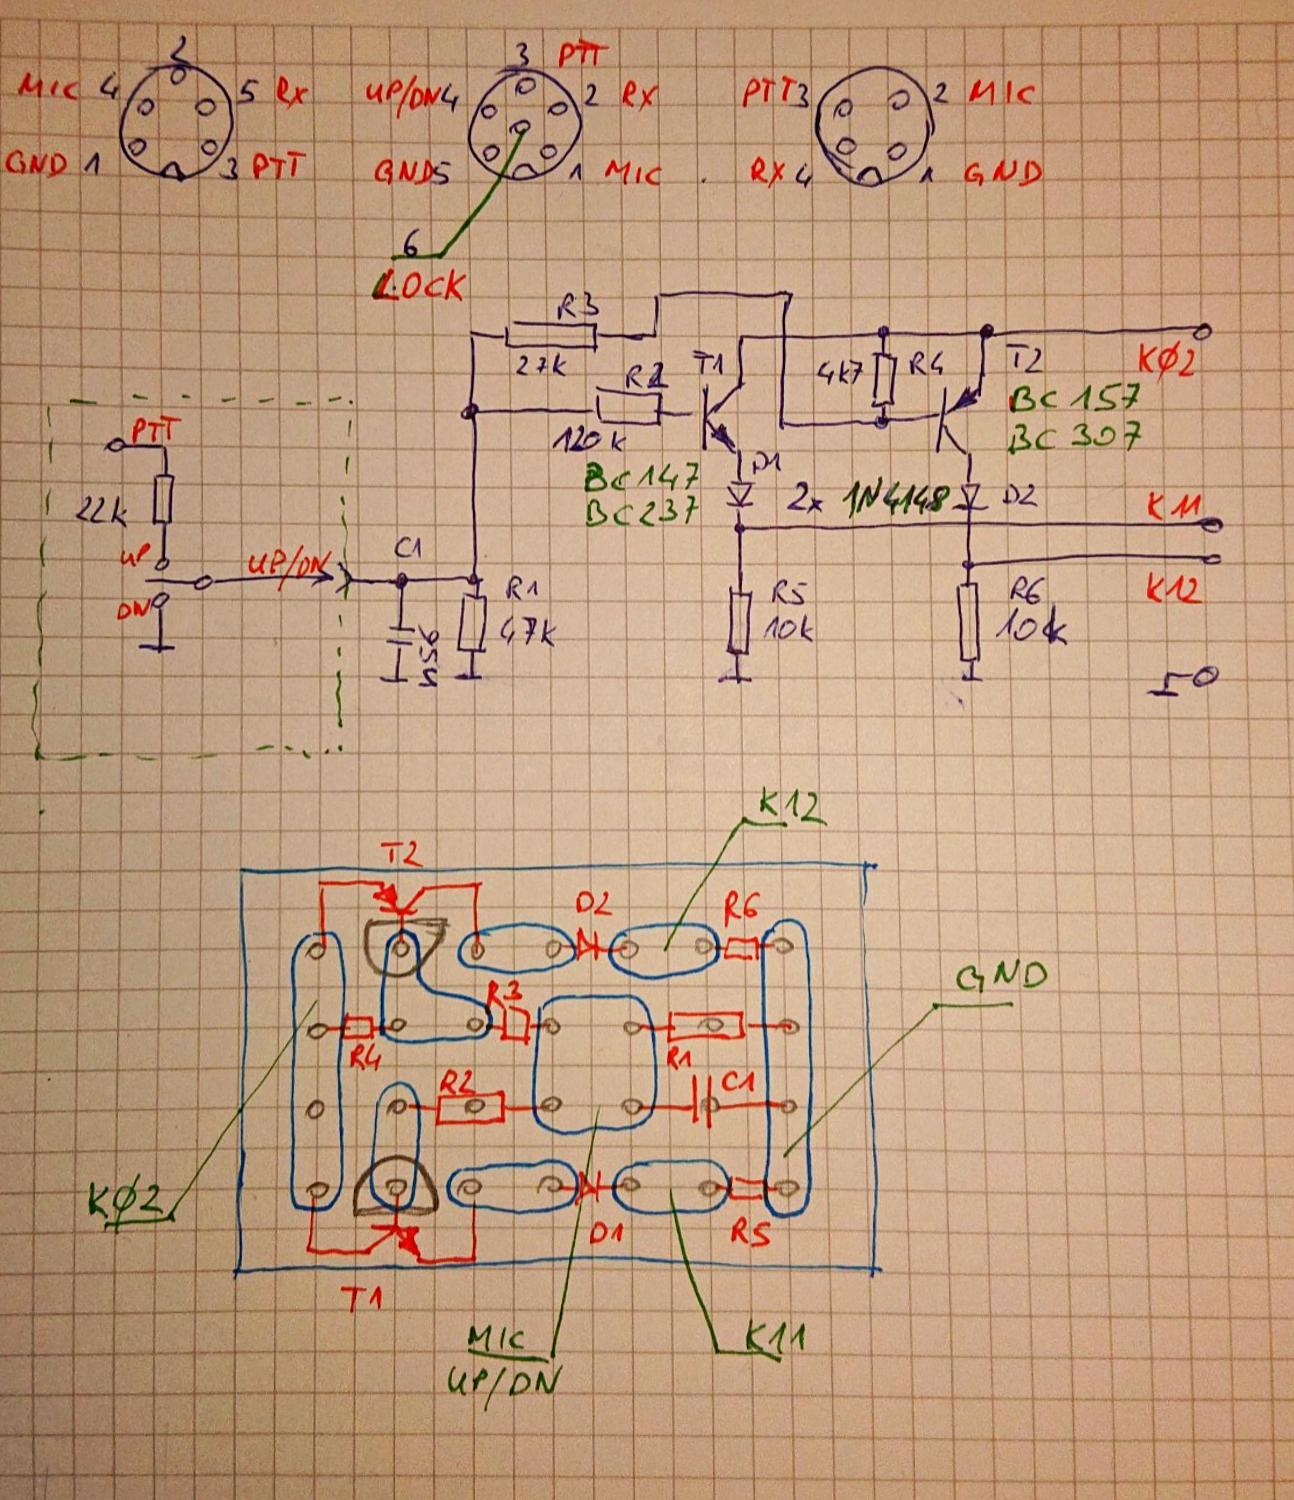 2
MIC 4
5 RX
GND 1
3 PTT
3 PTT
UP/DN 4
2 RX
GND 5
1 MIC
6
LOCK
PTT 3
2 MIC
RX 4
1 GND
R3
27k
R2
120k
T1
BC147
BC237
4k7
R4
T2
BC157
BC307
KØ2
D1
2x 1N4148
D2
K11
K12
PTT
22k
UP
DN
UP/DN
C1
R1
47k
R5
10k
R6
10k
K12
T2
D2
R6
GND
R3
R4
R1
R2
C1
KØ2
D1
R5
T1
MIC
UP/DN
K11